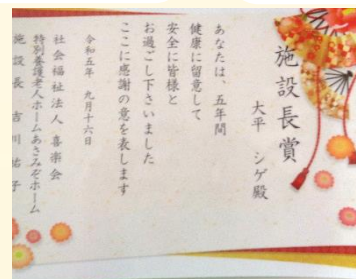 施設長賞
大平 シゲ殿
あなたは、五年間
健康に留意して
安全に皆様と
お過ごし下さいました
ここに感謝の意を表します
令和五年 九月十六日
社会福祉法人 喜楽会
特別養護老人ホームあさみぞホーム
施設長 吉川 祐子